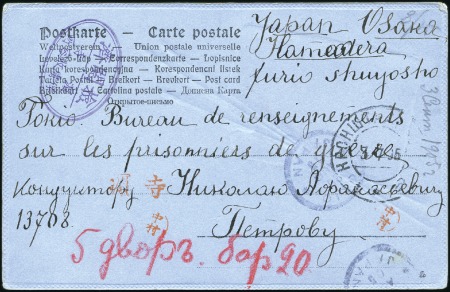 Postkarte — Carte postale
Weltpostverein — Union postale universelle
Levelező-lap — Correspondenzkarte — Lopisnice
Karta korespondencyjna — Korespondenční lístek
Brefkort — Brevkort — Post card
Briefkaart — Cartolina postale — Дописна Карта
Открытое письмо
Japan Osaka
Hamadera
furio shuyosho
Токіо. Bureau de renseignements
sur les prisonniers de guerre
кондуктору Николаю Афанасьевичу
13708.
Петрову
5 дворъ. бар 20